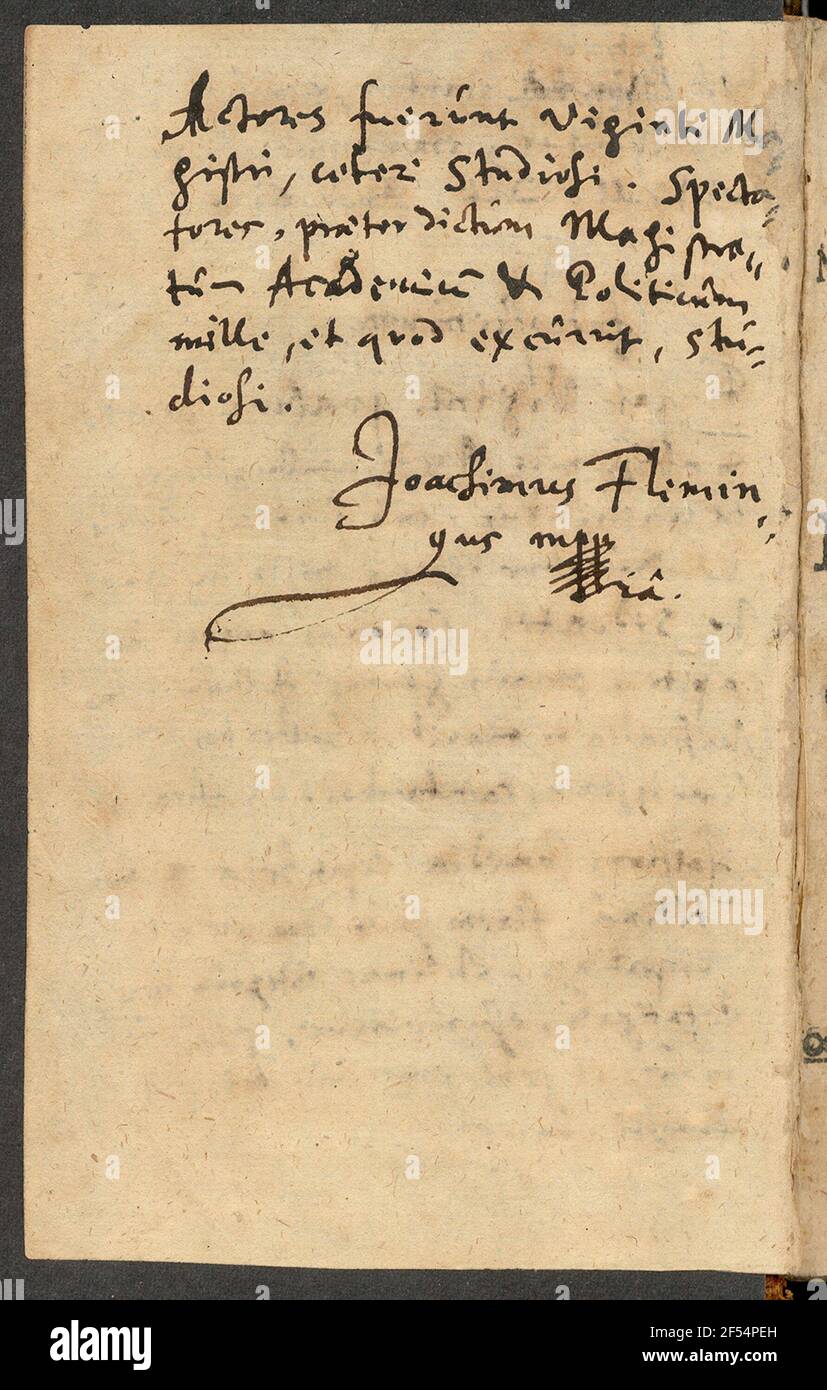 Actores fuerunt Viginti M
gistri, ceteri Studiosi. Specta-
tores, præter dictum Magistra-
tum Academicū & Politicum
mille, et quod excurrit, Stu-
diosi.
Joachimus Flemin-
gus mpp
riâ.
alamy
Image ID: 2F54PEH
www.alamy.com